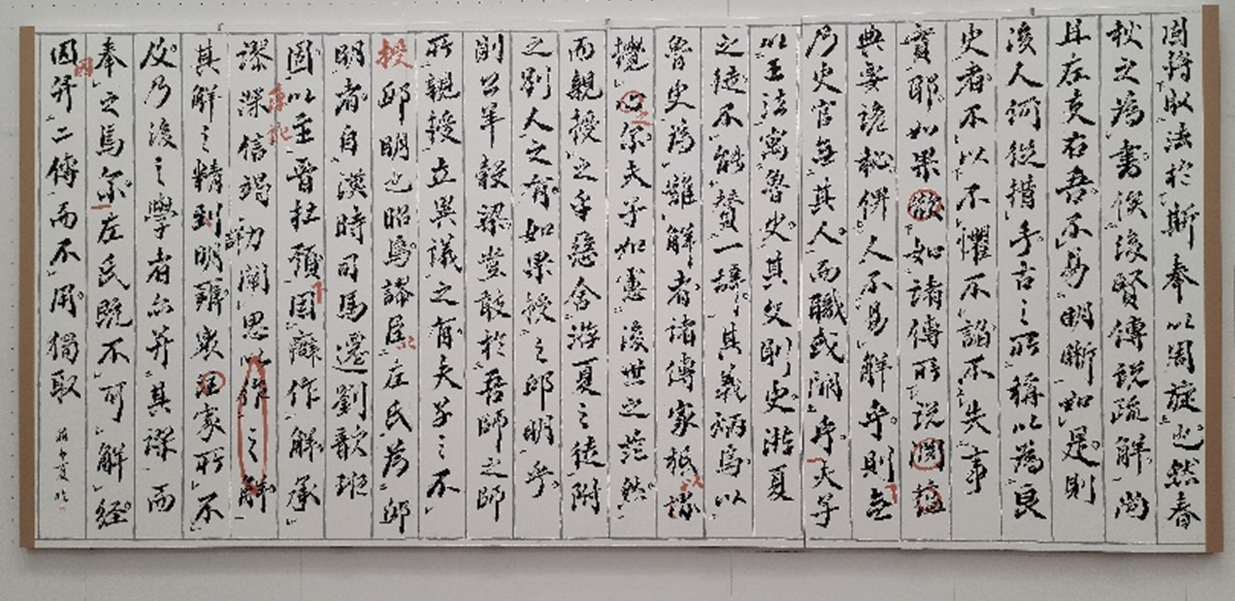 固將取法於斯奉以周旋也然春
秋之為書俟後賢傳説疏解尚
且左支右吾不易明晰如是則
後人何從措手古之所稱以為良
史者不以不懼不諂不失事
實耶如果 如諸傳所説
典要詭秘俾人不易解乎則無
乃史官無其人而職或闕乎夫子
以王法寓魯史其文則史游夏
之徒不能贊一辭其義炳焉以
魯史為難解者諸傳家
攪心尔夫子如 後世之茫然
而親授之乎惡舍游夏之徒附
之別人之有如果授之邱明乎
則公羊穀梁豈敢於吾師之師
所親授立異議之有夫子之不
授邱明也昭焉 左氏為邱
明者自漢時司馬遷劉歆班
固以至晉杜預 癖作解承
謬深信竭力闡思以作之解
其解之精到明辨 注家所不
及乃後之學者亦并其謬而
奉之焉尔左氏既不可解經
因并二傳而不用獨取